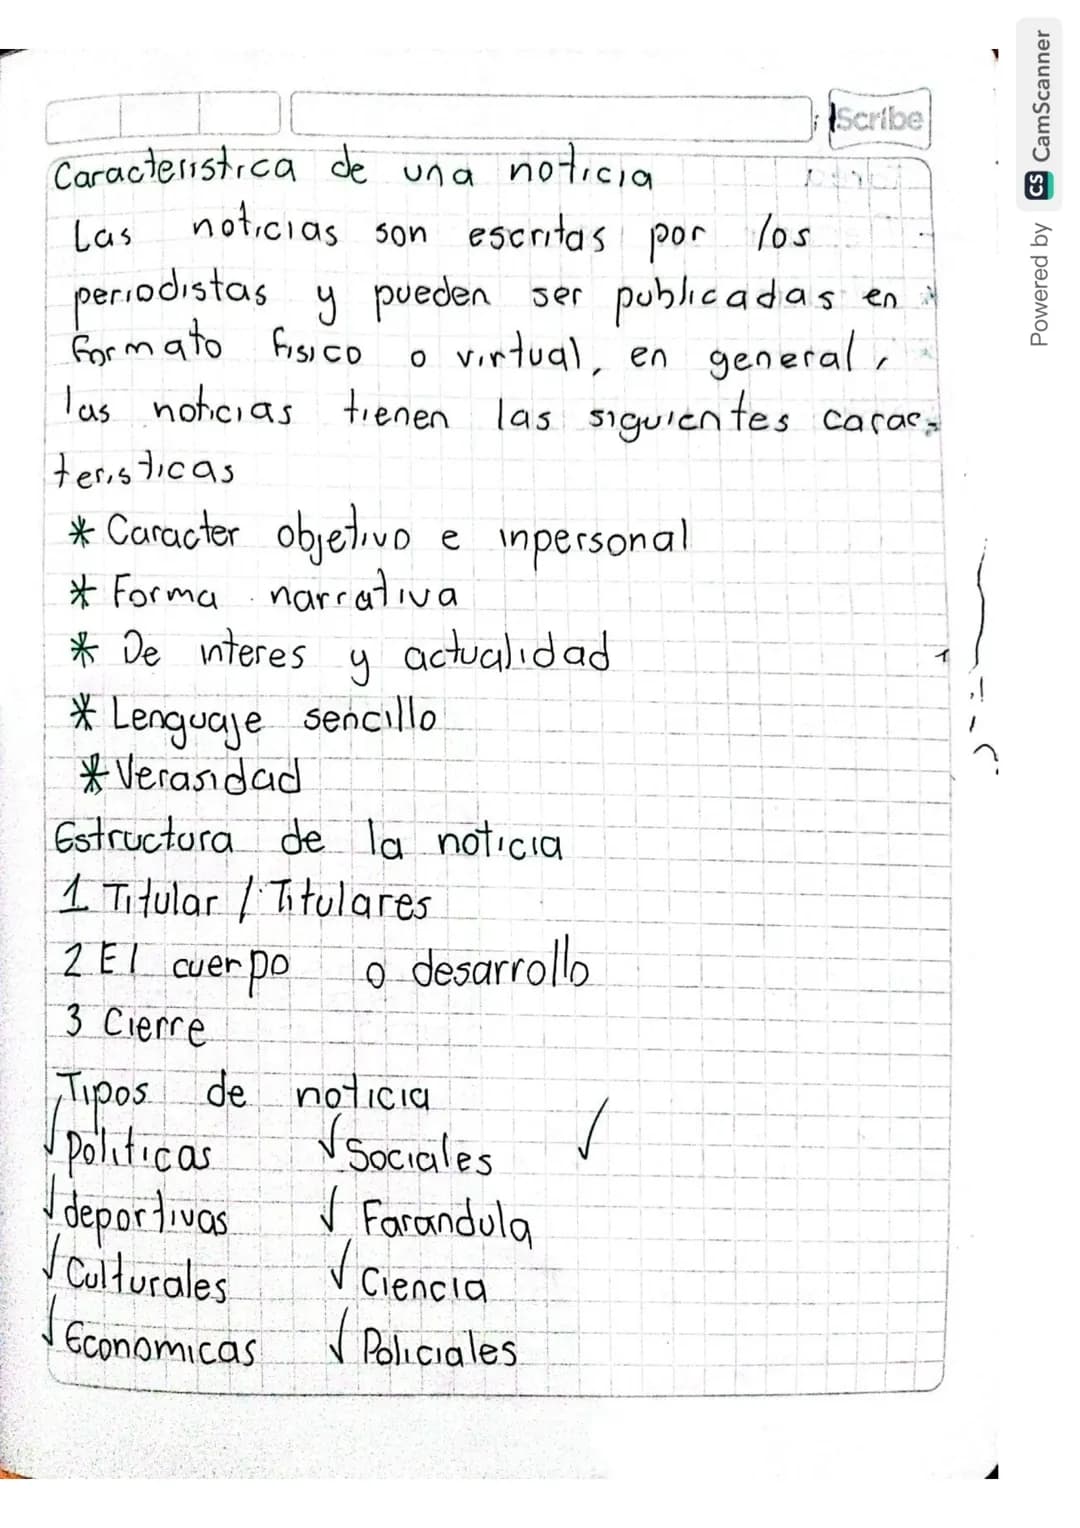 Scribe
Caracteristica de una noticia
Las noticias son escritas por los
periodistas y pueden ser publicadas en
formato fisico o virtual, en general,
las noticias tienen las siguientes carac-
teristicas
* Caracter objetivo e inpersonal
* Forma narrativa
* De interes y actualidad
* Lenguaje sencillo
* Verasidad
Estructura de la noticia
1 Titular / Titulares
2 El cuerpo o desarrollo
3 Cierre
Tipos de noticia
√ Politicas √ Sociales ✓
√ deportivas √ Farandula
√ Culturales √ Ciencia
√ Economicas √ Policiales
Powered by CS CamScanner